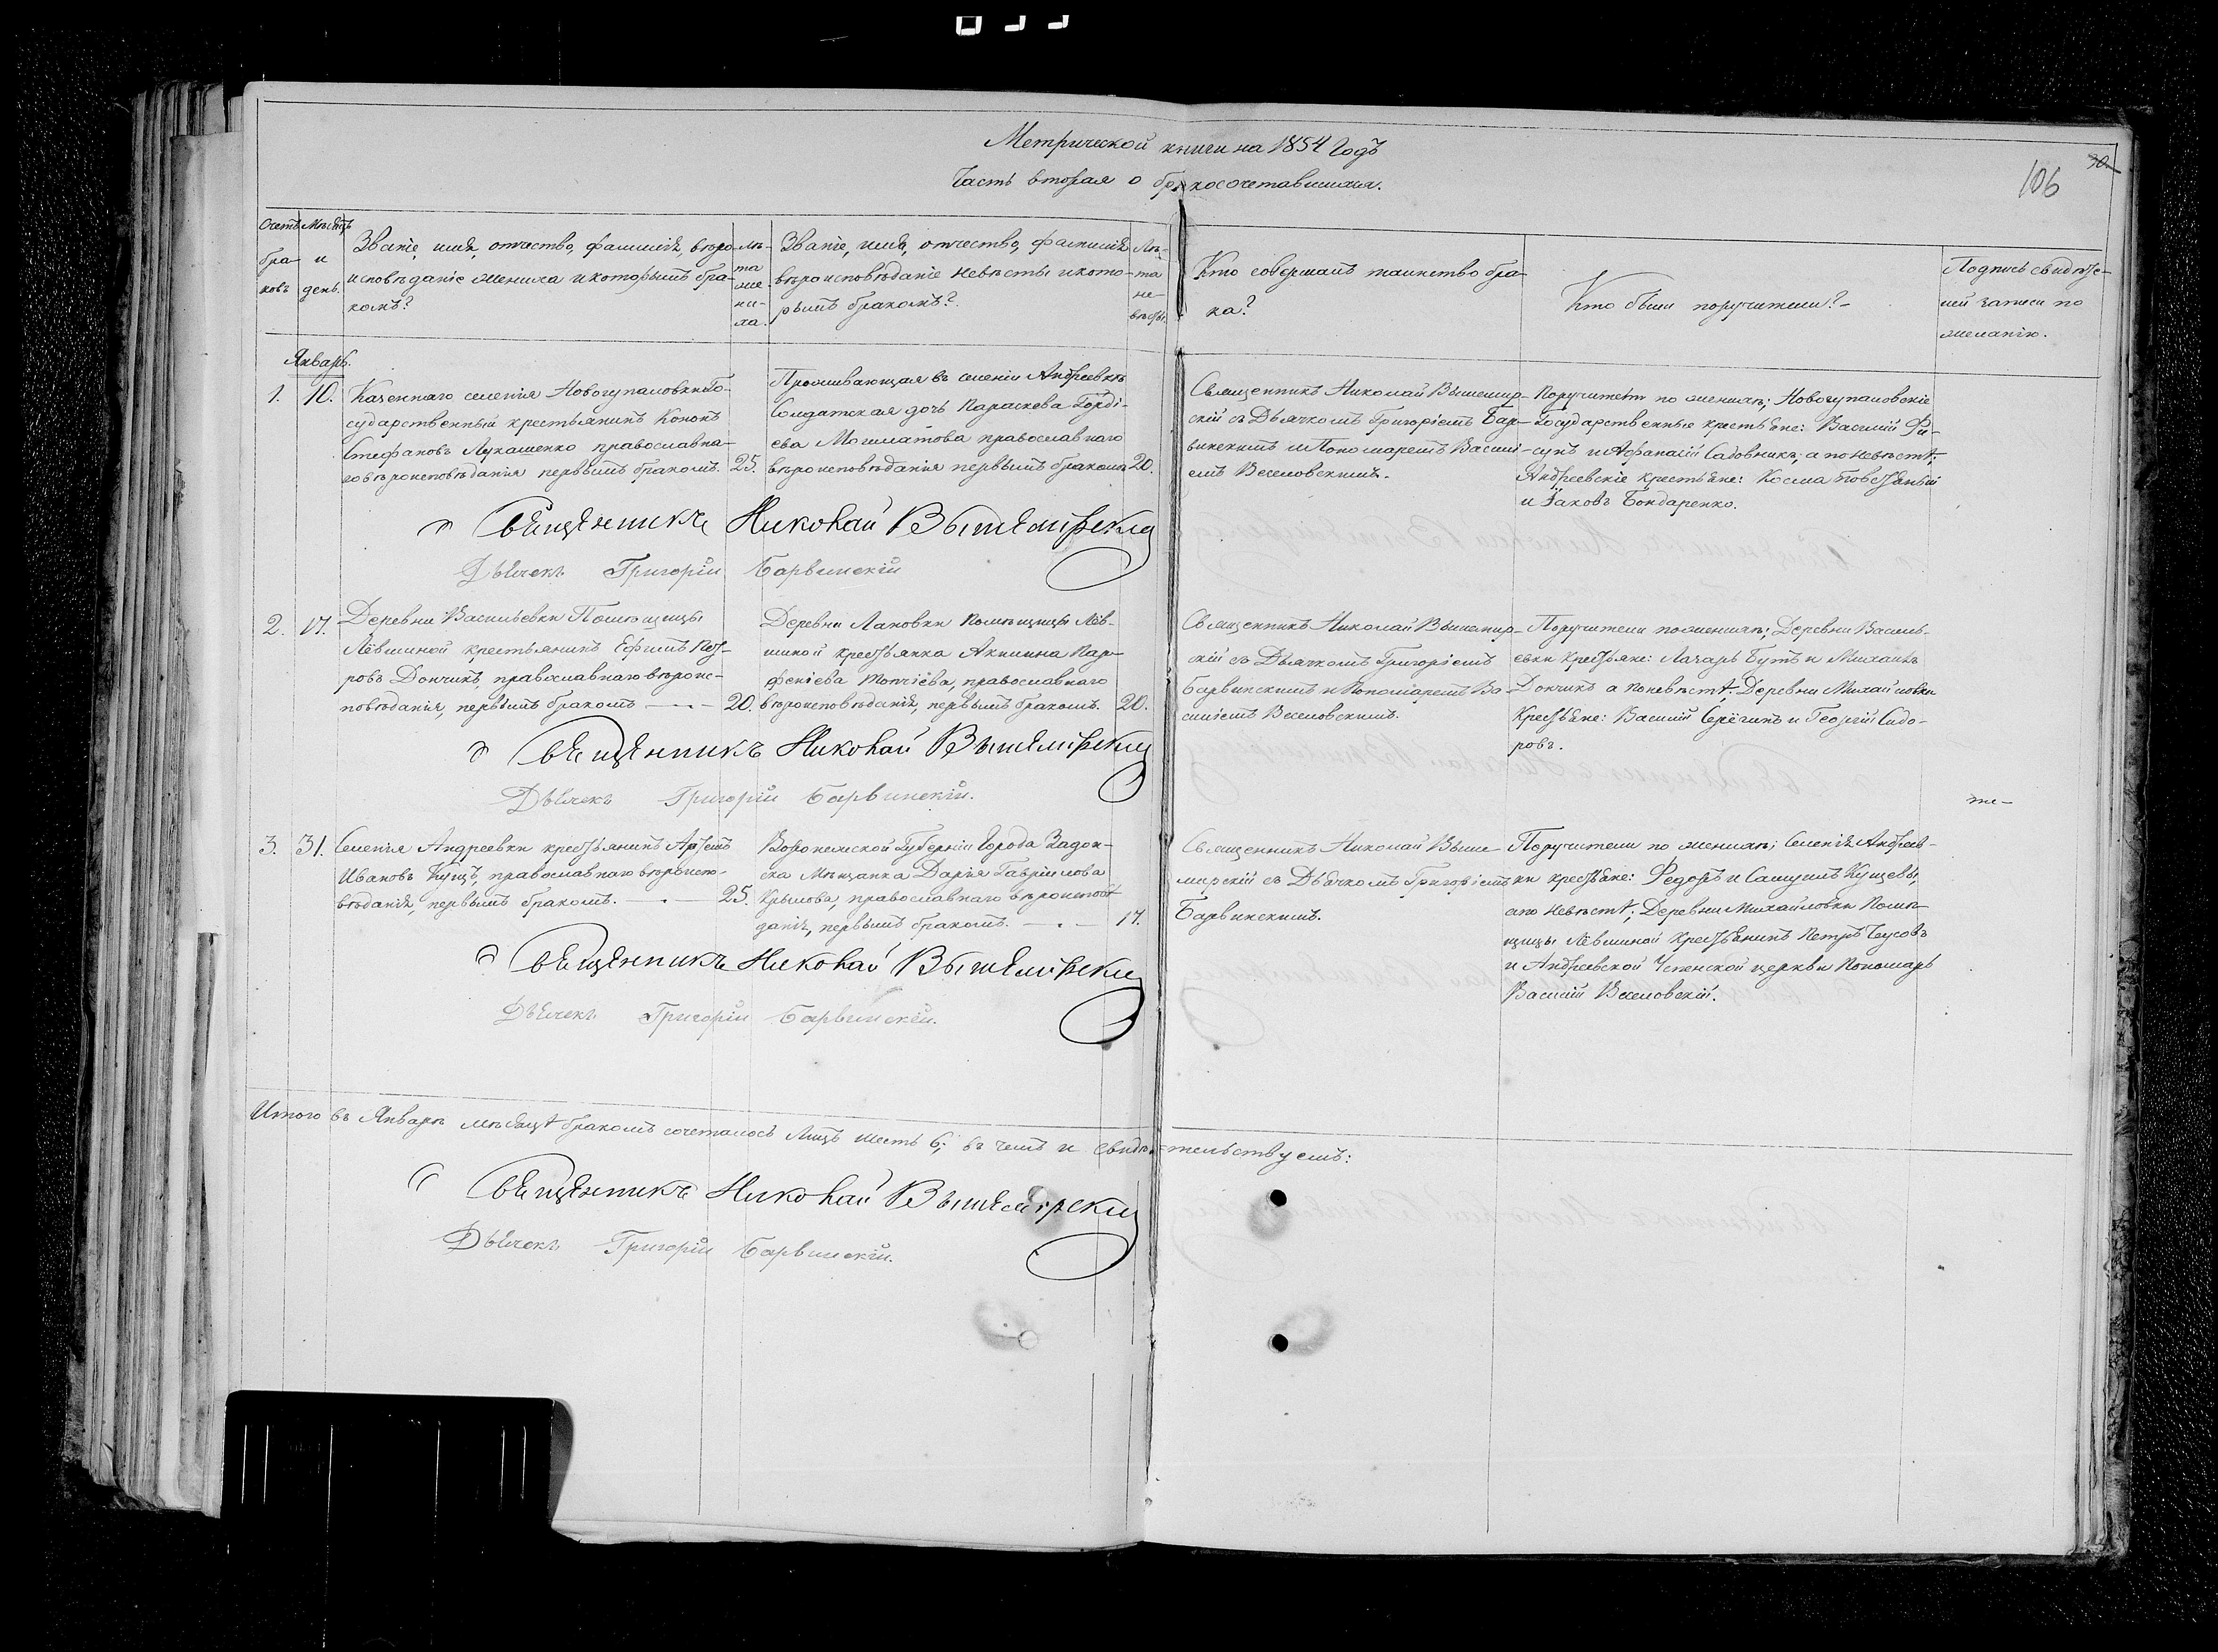 Метрической книги на 1854 Годъ
Часть вторая о бракосочетавшихся.
106
Счетъ бра-
ковъ
Мѣсяцъ
и
день.
Званіе, имя, отчество, фамилія, вѣро-
исповѣданіе жениха и которымъ бра-
комъ?
Лѣ-
та
же-
ни-
ха.
Званіе, имя, отчество, фамилія
вѣроисповѣданіе невѣсты и кото-
рымъ бракомъ?
Лѣ-
та
не-
вѣсты
Кто совершалъ таинство бра-
ка?
Кто были поручители?
Подпись свидѣте-
лей записи по
желанію.
Январь.
1. 10.
Казеннаго селенія Новогупаловки Го-
сударственный крестьянинъ Кононъ
Стефановъ Лукашенко православна-
го вѣроисповѣданія первымъ бракомъ. 25.
Проживающая въ селеніи Андреевкѣ
Солдатская дочь Параскева Горді-
ева православнаго
вѣроисповѣданія первымъ бракомъ 20.
Священникъ Николай Вышемир-
скій съ Дьячкомъ Григоріемъ Бар-
винскимъ и Пономаремъ Васил-
емъ Веселовскимъ.
по женихѣ; Новогупаловскіе
Государственные крестьяне: Василій Фи-
сунъ и Афанасій Садовникъ; а по невѣстѣ,
Андреевскіе крестьяне: Косма
и Іаковъ Бондаренко.
Священникъ Николай Вышемірскій
Дьячекъ Григорій Барвинскій
2. 17.
Деревни Васильевки Помѣщицы
Лёвшиной крестьянинъ Ефимъ Пет-
ровъ Дончикъ, православнаго вѣроис-
повѣданія, первымъ бракомъ — 20.
Деревни Лановки помѣщицы Лёв-
шиной крестьянка Акилина Пар-
феніева Топчіева, православнаго
вѣроисповѣданія, первымъ бракомъ. 20.
Священникъ Николай Вышемир-
скій съ Дьячкомъ Григоріемъ
Барвинскимъ и Пономаремъ Ва-
силіемъ Веселовскимъ.
Поручители по женихѣ; Деревни Василь-
евки крестьяне: Лазарь Бутъ и Михаилъ
Дончикъ а по невѣстѣ, Деревни Михайловки
Крестьяне: Василій Серёгинъ и Георгій Сидо-
ровъ.
Священникъ Николай Вышемірскій
Дьячекъ Григорій Барвинскій.
3. 31.
Селенія Андреевки крестьянинъ Артемъ
Ивановъ Кущъ, православнаго вѣроиспо-
вѣданія, первымъ бракомъ. — 25.
Воронежской Губерніи Города Задон-
ска Мѣщанка Дарія Гавріилова
Крылова, православнаго вѣроисповѣ
данія, первымъ бракомъ. — 17.
Священникъ Николай Выше-
мирскій съ Дьячкомъ Григоріемъ
Барвинскимъ.
Поручители по женихѣ; Селенія Андреев-
ки крестьяне: Федоръ и Самуилъ Кущевы,
а по невѣстѣ; Деревни Михайловки Помѣ-
щицы Лёвшиной крестьянинъ Петръ Чусовъ
и Андреевской Успенской церкви Пономарь
Василій Веселовскій.
Священникъ Николай Вышемірскій
Дьячекъ Григорій Барвинскій.
Итого въ Январѣ мѣсяцѣ бракомъ сочеталось лицъ шесть 6; въ чемъ и свидѣтельствуемъ:
Священникъ Николай Вышемірскій
Дьячекъ Григорій Барвинскій.